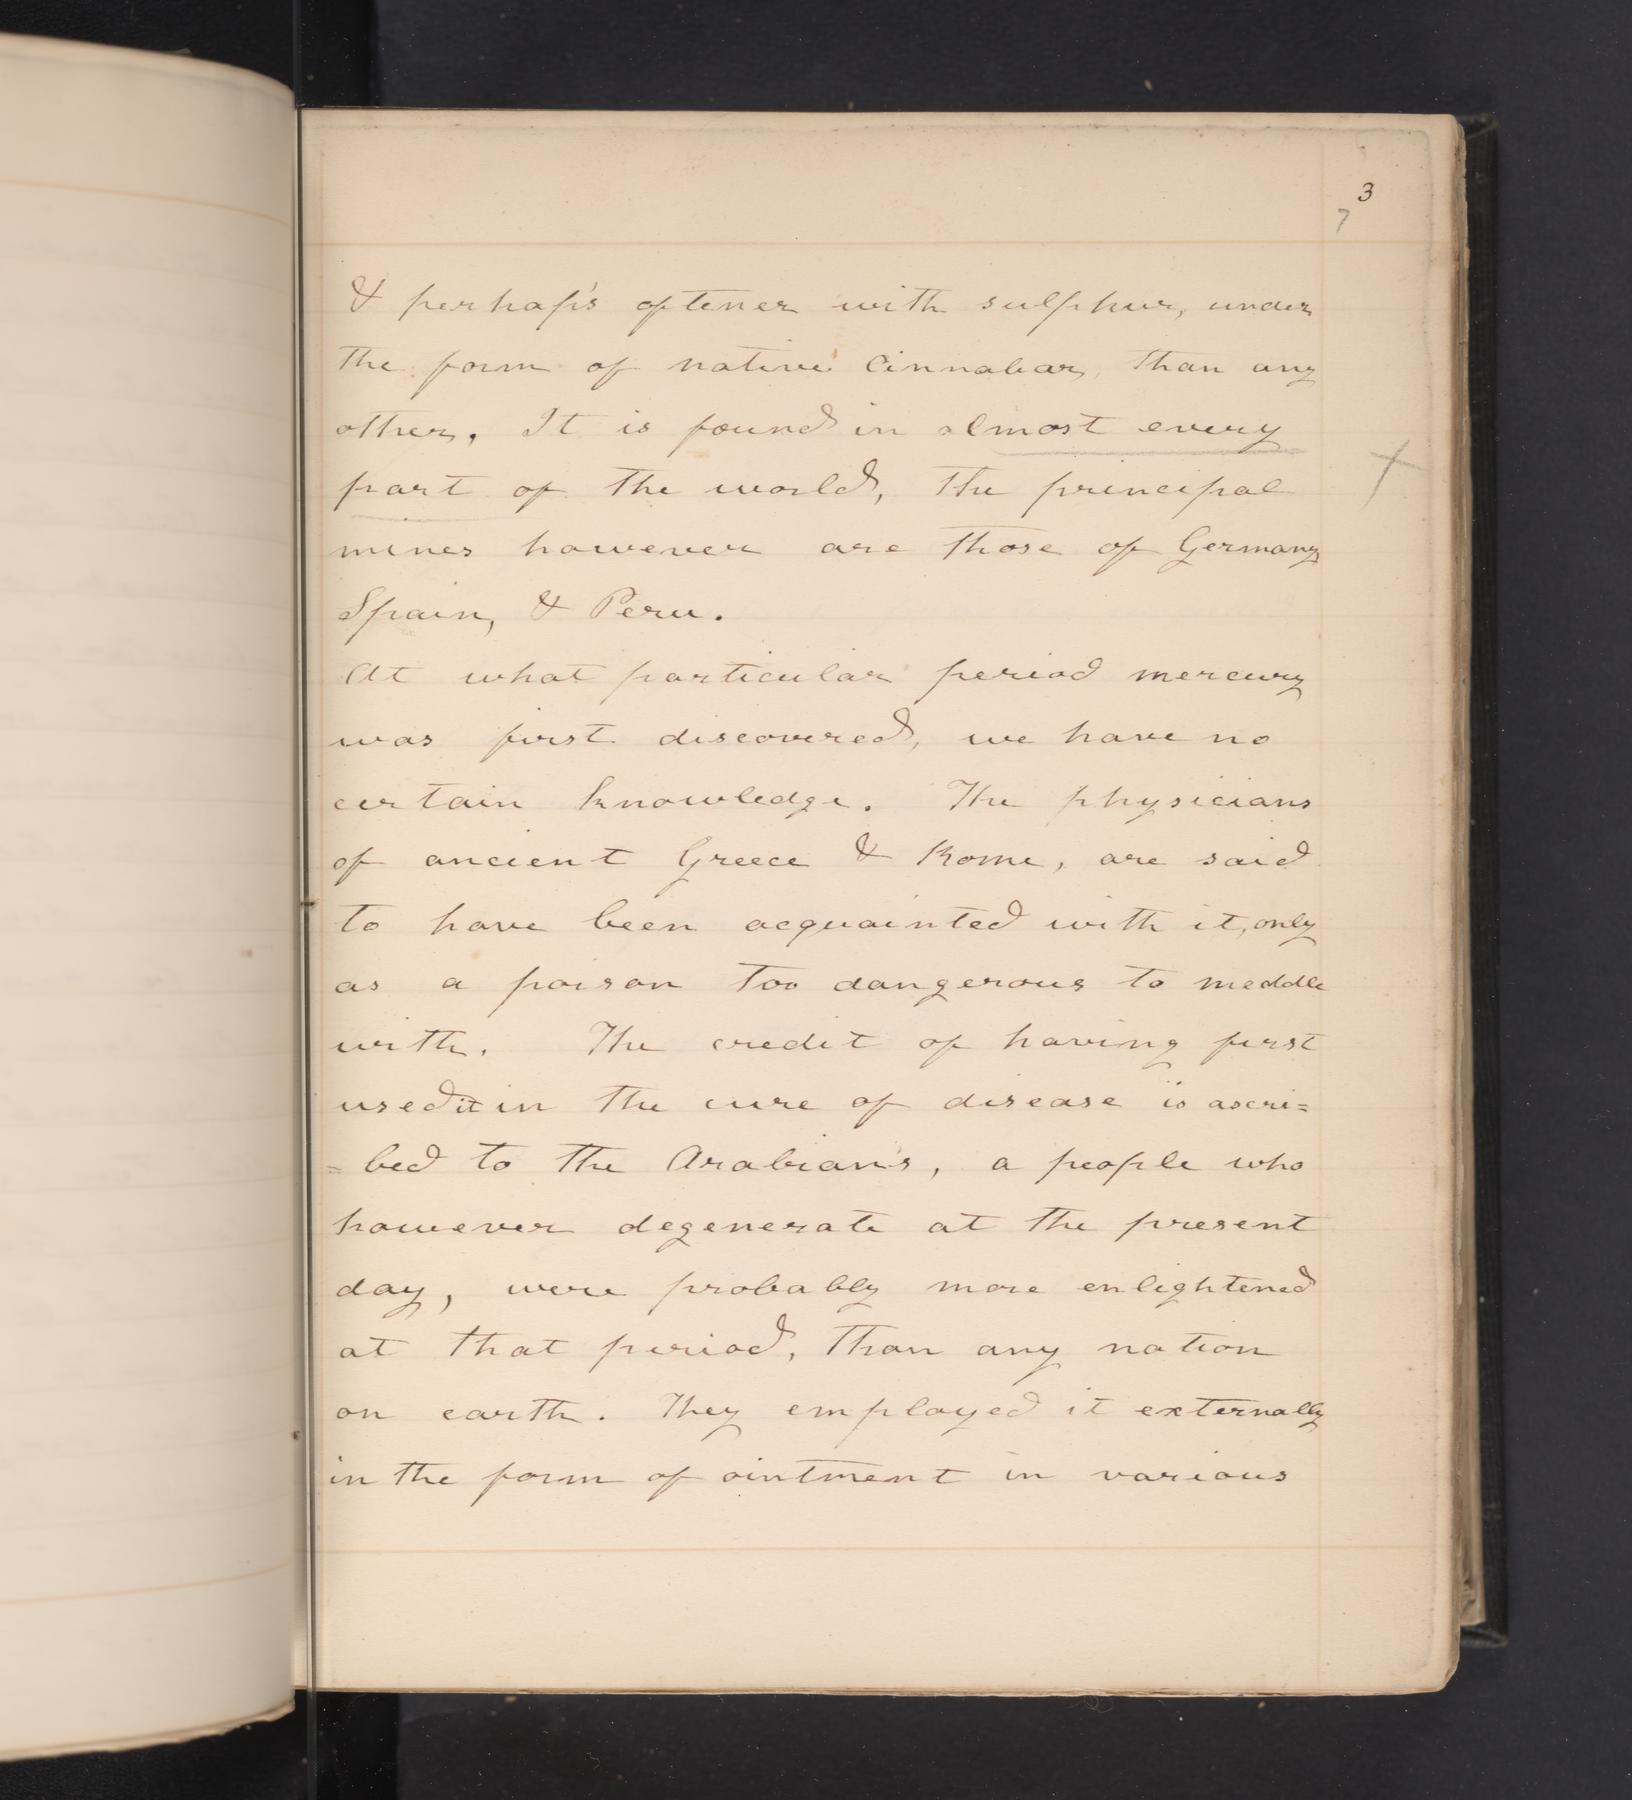 3
7
& perhap's oftener with sulphur, under
the form of native Cinnabar, than any
other. It is found in almost every
part of the world, the principal
mines however are those of Germany
Spain, & Peru.
At what particular period mercury
was first discovered, we have no
certain knowledge. The physicians
of ancient Greece & Rome, are said
to have been acquainted with it, only
as a poison too dangerous to meddle
with. The credit of having first
used it in the cure of disease is ascri=
=bed to the Arabian's, a people who
however degenerate at the present
day, were probably more enlightened
at that period, than any nation
on earth. They employed it externally
in the form of ointment in various